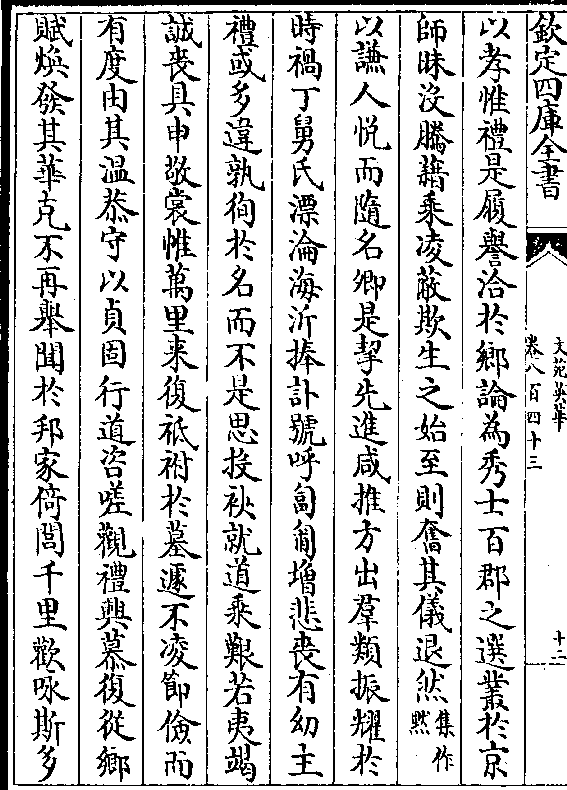 欽定四庫全書
文苑英華
卷八百四十三
十二
以孝惟禮是履譽洽於鄉論為秀士百郡之選叢於京
師昧沒騰藉乘凌蔽欺生之始至則奮其儀退然集作黙
以謙人悅而隨名卿是挈先進咸推方出羣類振耀於
時禍丁舅氏漂淪海沂捧訃號呼匍匐增悲喪有幼主
禮或多違孰徇於名而不是思投袂就道乘艱若夷竭
誠喪具申敬裳帷萬里来復祗祔於墓遽不凌節儉而
有度由其溫恭守以貞固行道咨嗟觀禮興慕復從鄉
賦煥發其華克不再舉聞於邦家倚閭千里歡咏斯多